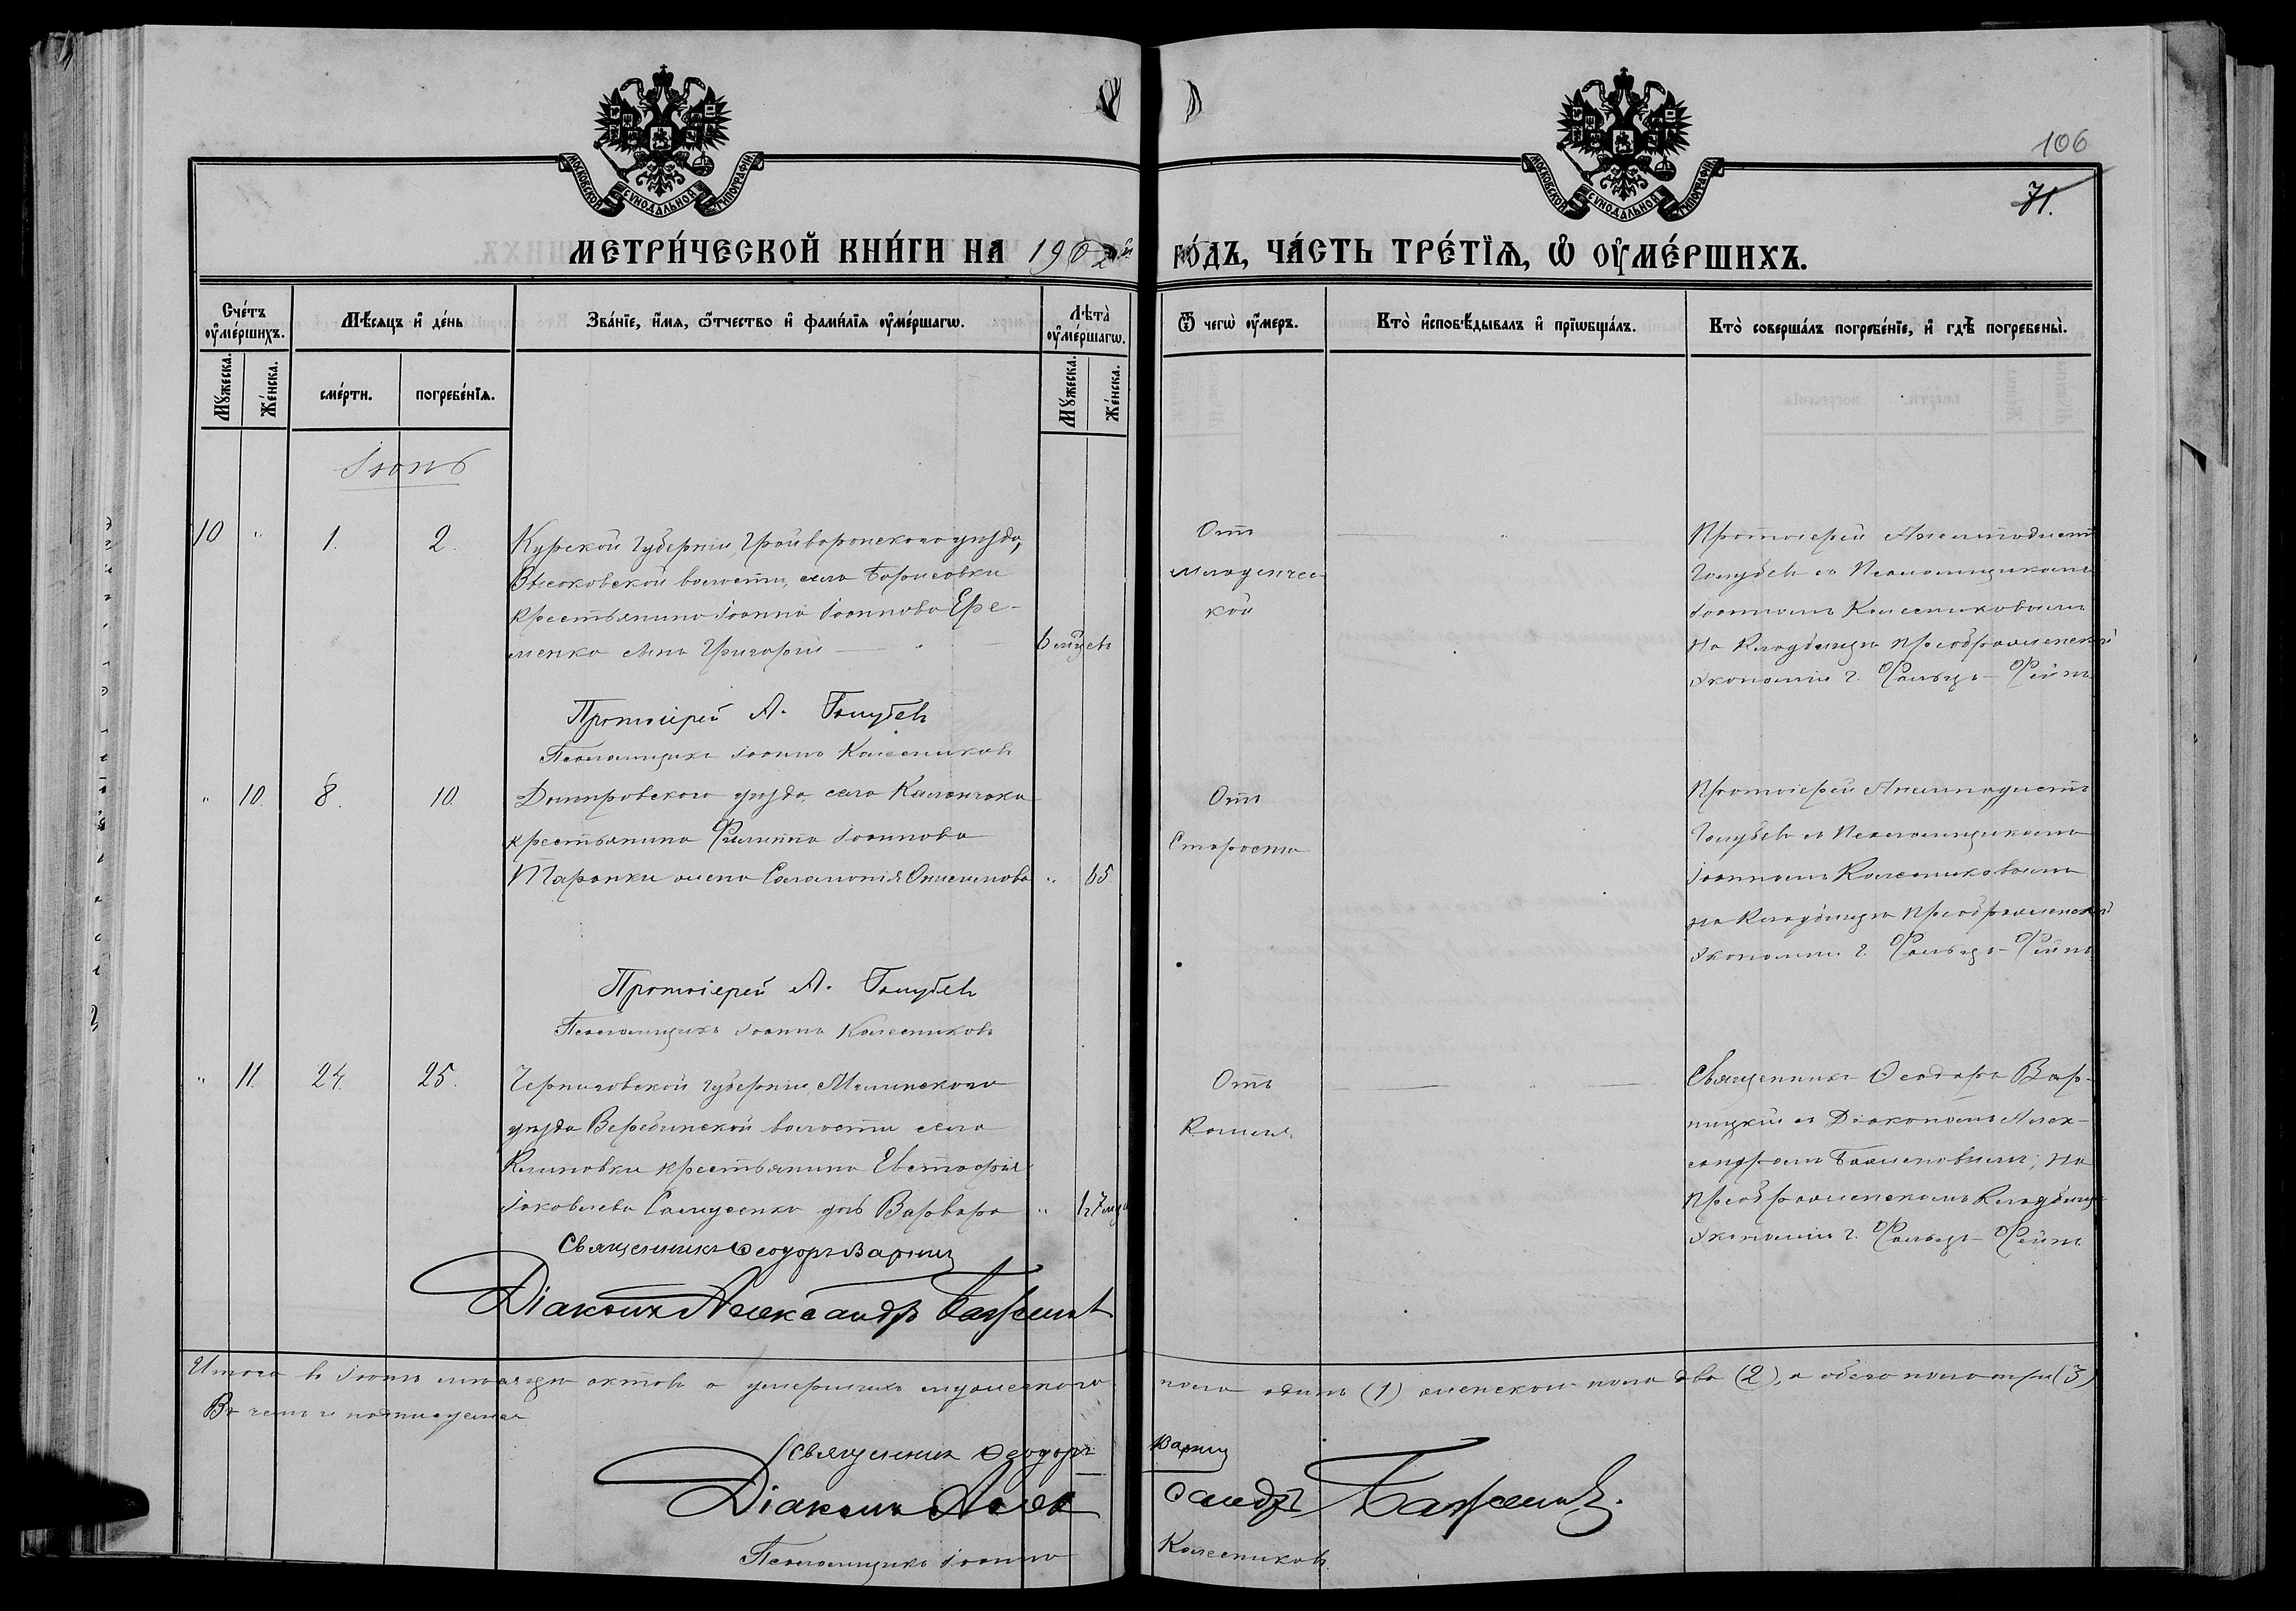 106
71.
МОСКОВСКОЙ СѴНОДАЛЬНОЙ ТИПОГРАФІИ
МОСКОВСКОЙ СѴНОДАЛЬНОЙ ТИПОГРАФІИ
МЕТРИ́ЧЕСКОЙ КНИ́ГИ НА 1902й ГО́ДЪ, ЧА́СТЬ ТРЕ́ТІѦ, Ѡ ОУМЕ́РШИХЪ.
Сче́тъ оуме́ршихъ.
Мꙋ́жеска.
Же́нска.
Мѣ́сяцъ и де́нь
сме́рти.
погребе́нїѧ.
Зва́нїе, и́мѧ, ѻ҆́тчество и фами́лїѧ оуме́ршагѡ.
Лѣта̀ оуме́ршагѡ.
Мꙋ́жеска.
Же́нска.
Ѿ чегѡ̀ оу́меръ.
Кто̀ и҆сповѣ́дывалъ и прїѡбща́лъ.
Кто̀ соверша́лъ погребе́нїе, и гдѣ̀ погребены̀.
Іюнь
10 " 1. 2.
Курской губерніи, Грайворонскаго уѣзда,
Высоковской волости, села Борисовки
крестьянина Іоанна Іоаннова Ере-
менко сынъ Григорій
6 мцевъ
От
младенчес
кой
Протоіерей Анемподистъ
Голубевъ съ Псаломщикомъ
Іоанномъ Колесниковымъ
на Кладбищѣ Преображенской
Экономіи г. Фальцъ-Фейнъ
Протоіерей А. Голубевъ
Псаломщикъ Іоаннъ Колесниковъ
" 10. 8. 10.
Днѣпровского уѣзда, села Каланчака
крестьянина Филиппа Іоаннова
Таранки жена Соломонія Онисимова " 65
Отъ
Старости
Протоіерей Анемподистъ
Голубевъ съ Псаломщикомъ
Іоанномъ Колесниковымъ
на Кладбищѣ Преображенской
Экономіи г. Фальцъ-Фейнъ
Протоіерей А. Голубевъ
Псаломщикъ Іоаннъ Колесниковъ
" 11. 24. 25.
Черниговской губерніи Мглинского
уѣзда волости села
Климовки крестьянина Евстафія
Іаковлева Самусенко дочь Варвара "
Отъ
Кашля
Священникъ Ѳеодоръ Вар-
ницкій съ Діакономъ Алек-
сандромъ Баженовымъ, на
Преображенскомъ Кладбищѣ
Экономіи г. Фальцъ-Фейнъ
Священникъ Ѳеодоръ Варниц
Діаконъ Александръ Баженовъ
Итого въ Іюнѣ мѣсяцѣ актовъ о умершихъ мужескаго пола одинъ (1) женскаго пола два (2), а обего пола три (3)
Въ чемъ и подписуемся
Священник Ѳеодоръ Варниц
Діаконъ Александръ Баженовъ.
Псаломщикъ Іоаннъ Колесниковъ